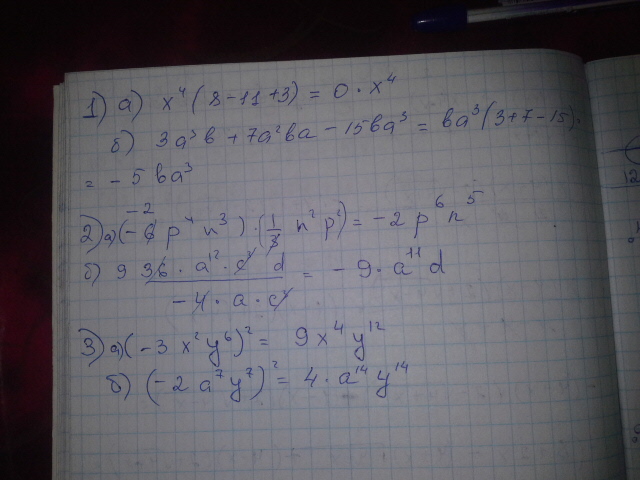 1) а) x⁴(8-11+3) = 0 · x⁴
б) 3a³b + 7a²ba - 15ba³ = ba³(3+7-15) =
= -5ba³
-2
2) а) (-6 p⁴ n³) · (1/3 n² p²) = -2 p⁶ n⁵
б) 9 36 · a¹² · c⁴ d / -4 · a · c⁴ = -9 · a¹¹ d
3) а) (-3 x² y⁶)² = 9x⁴y¹²
б) (-2 a⁷ y⁷)² = 4 · a¹⁴ y¹⁴
12